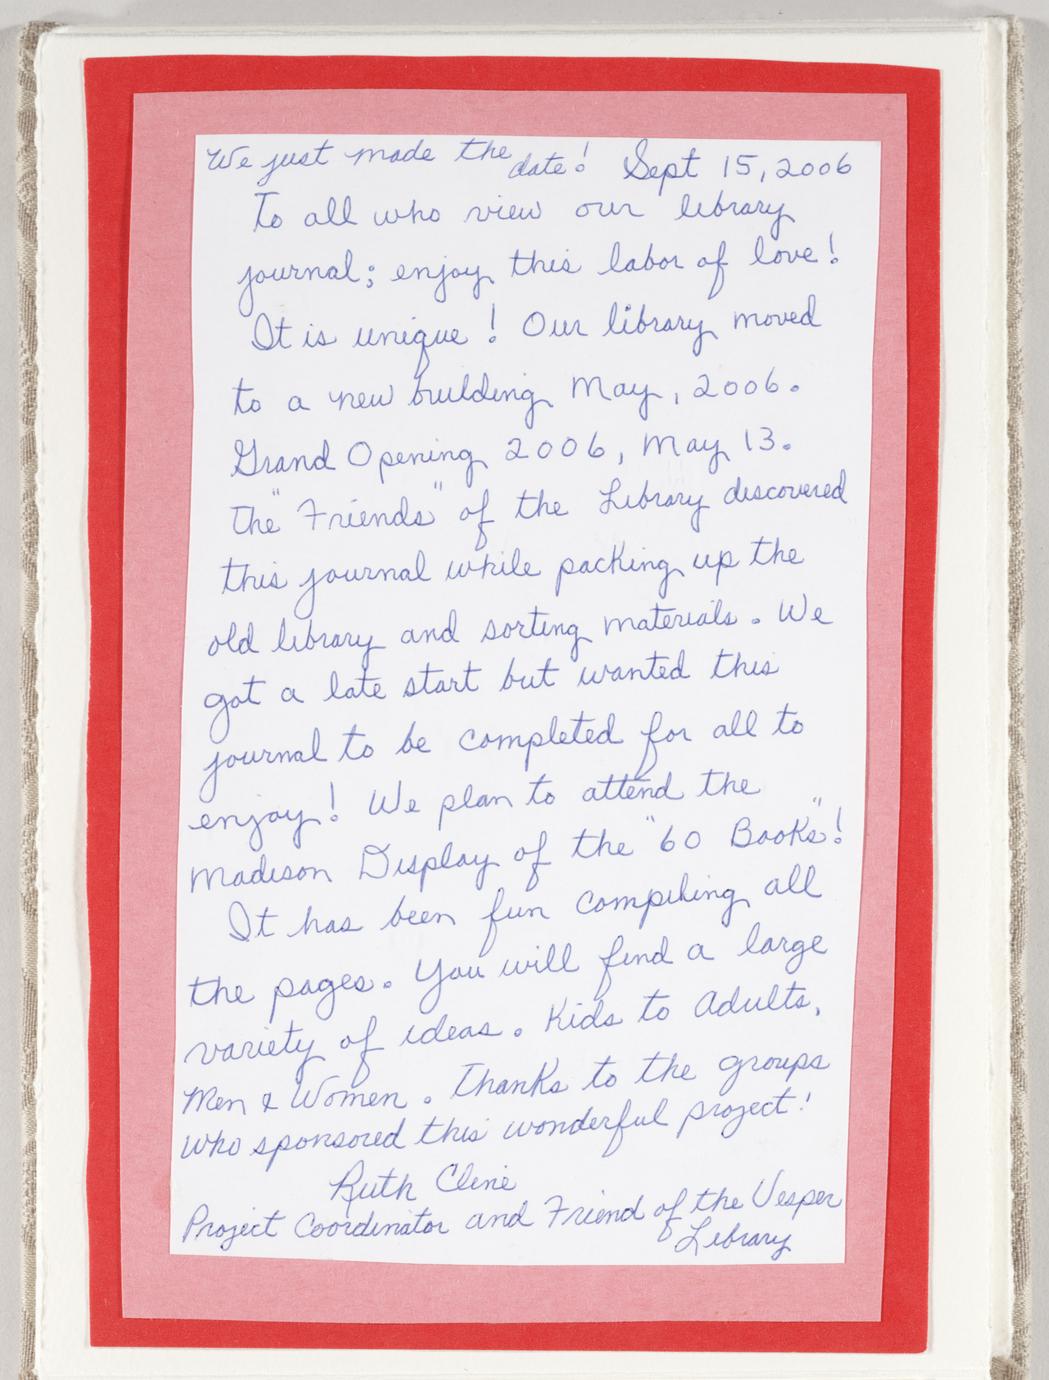 We just made the date! Sept 15, 2006
To all who view our library
journal; enjoy this labor of love!
It is unique! Our library moved
to a new building May, 2006.
Grand Opening 2006, May 13.
The "Friends" of the Library discovered
this journal while packing up the
old library and sorting materials. We
got a late start but wanted this
journal to be completed for all to
enjoy! We plan to attend the
Madison Display of the "60 Books"!
It has been fun compiling all
the pages. You will find a large
variety of ideas. Kids to Adults,
Men & Women. Thanks to the groups
who sponsored this wonderful project!
Ruth Cline
Project Coordinator and Friend of the Vesper
Library